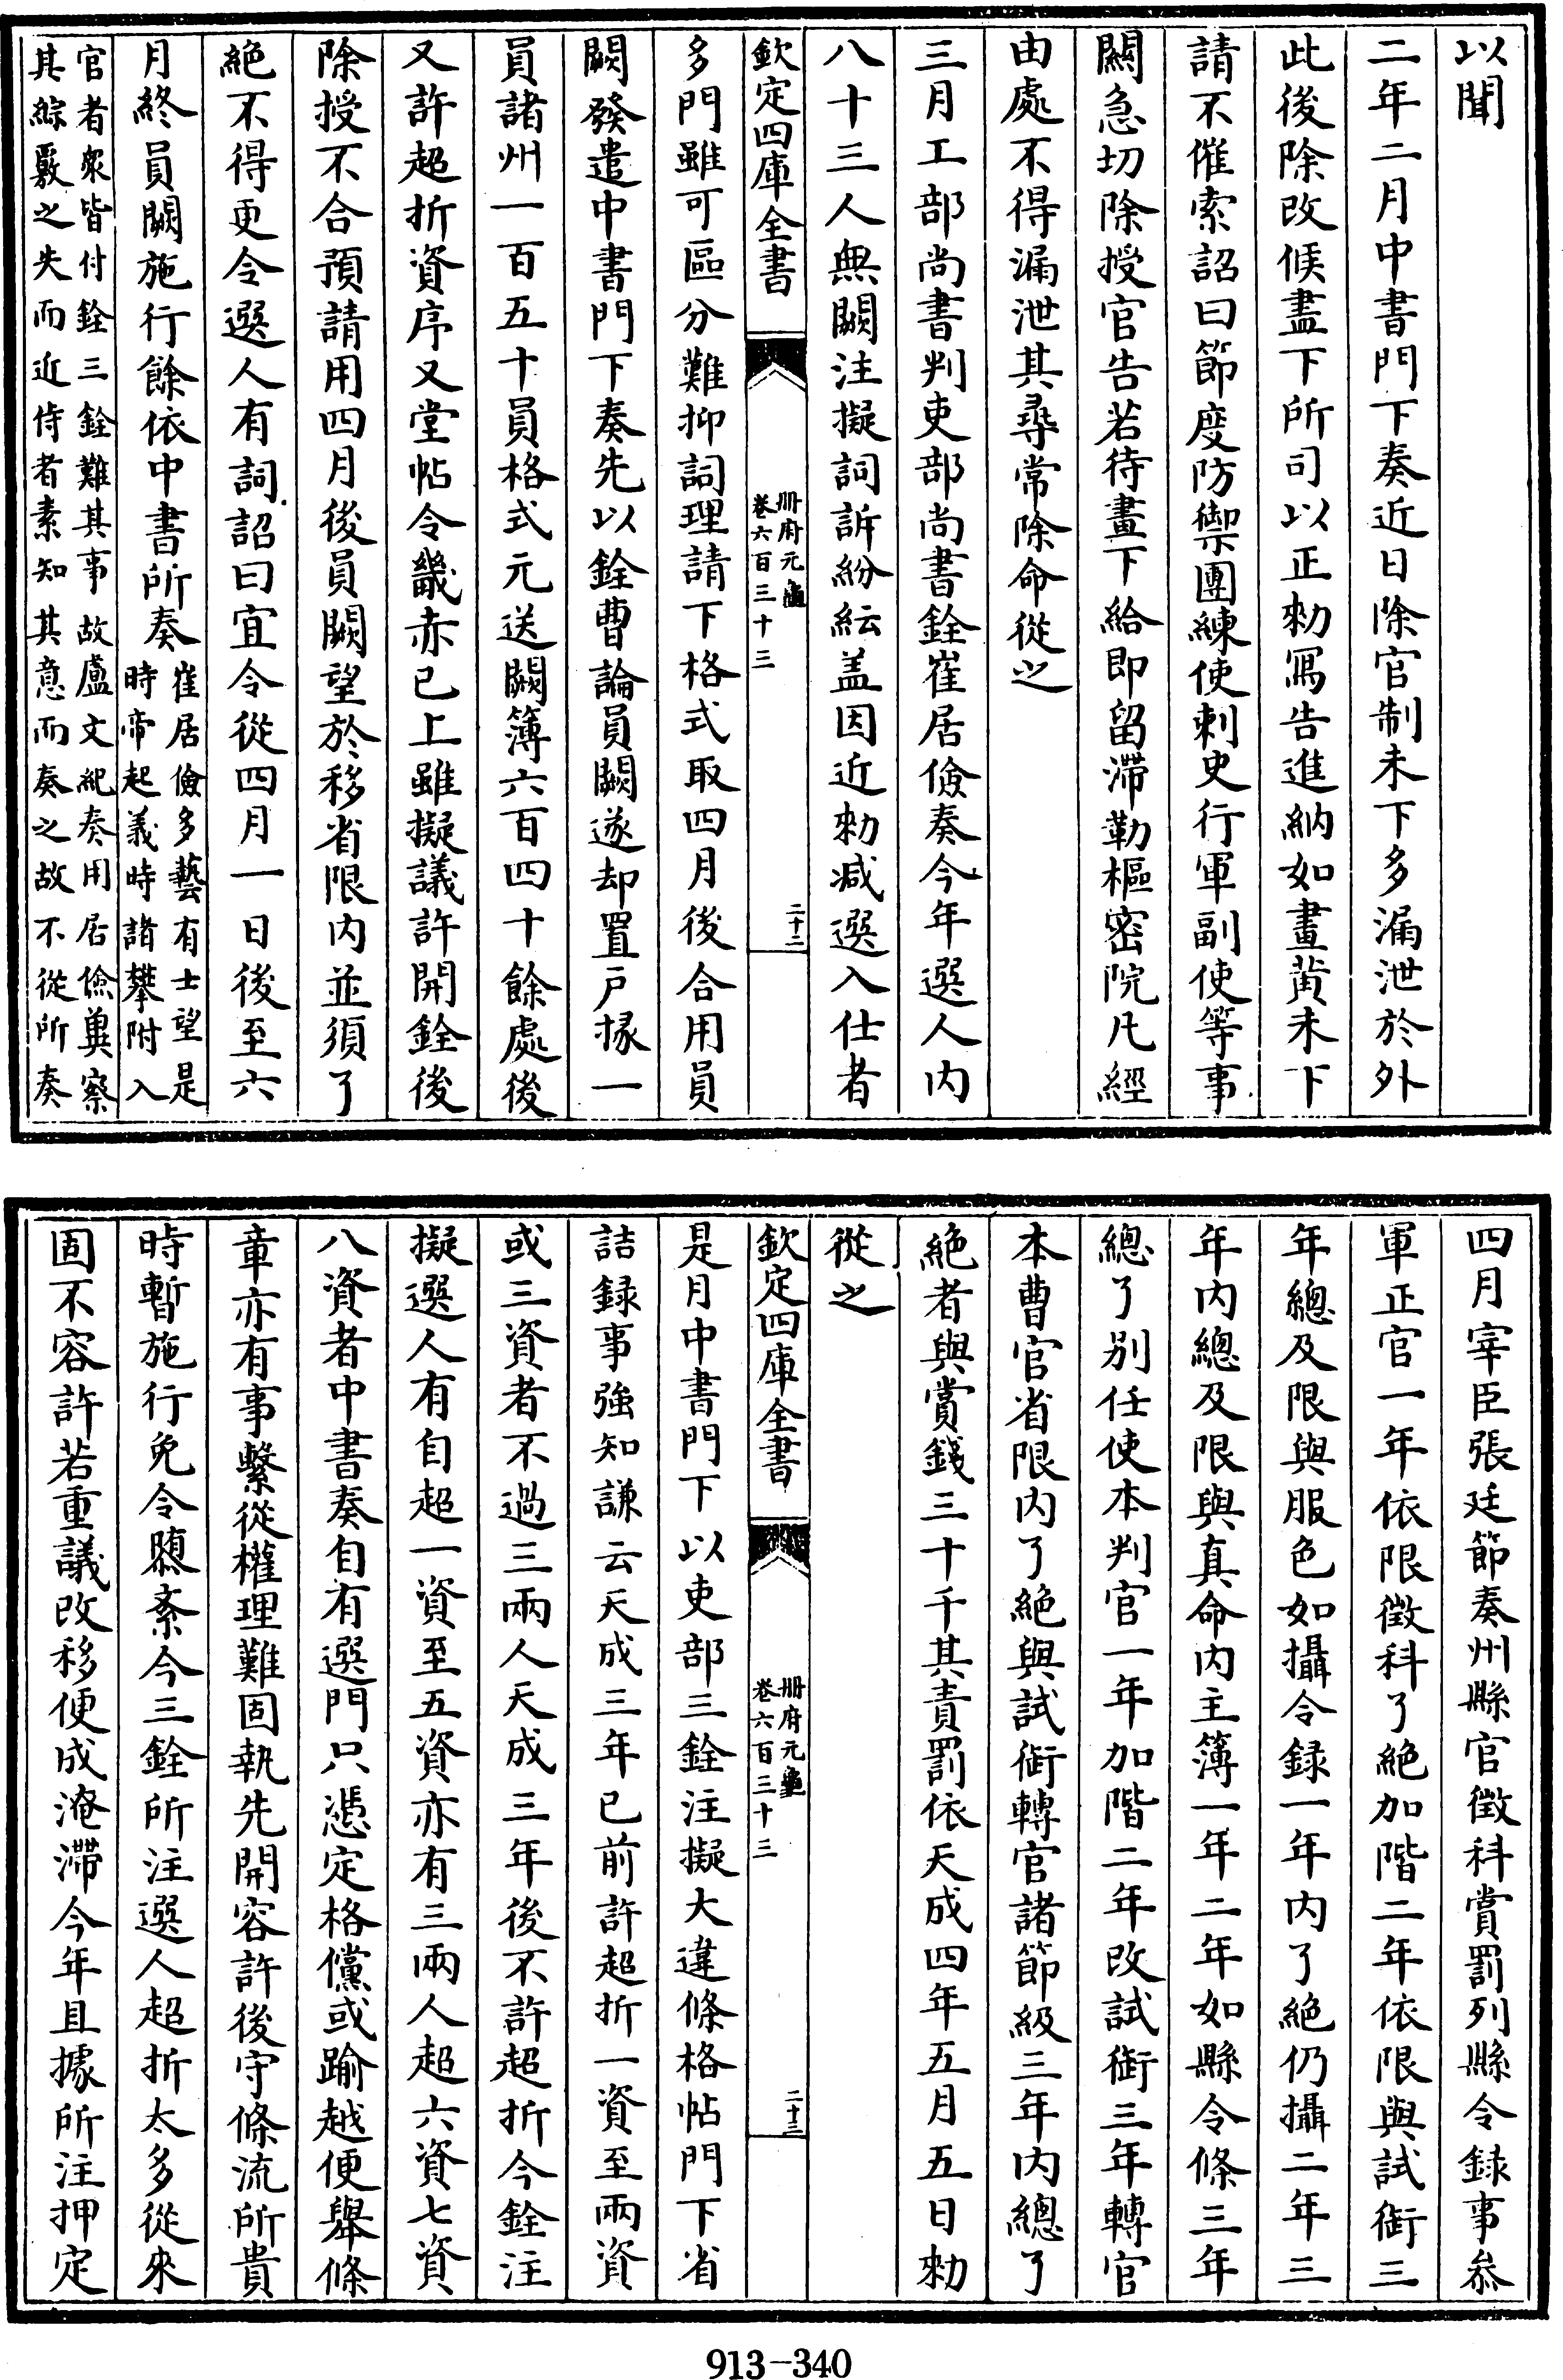 以聞
二年二月中書門下奏近日除官制未下多漏泄於外
此後除改候盡下所司以正勅寫告進納如畫黄未下
請不催索詔曰節度防禦團練使刺史行軍副使等事
闗急切除授官告若待畫下給即留滯勒樞密院凡經
由處不得漏泄其尋常除命從之
三月工部尚書判吏部尚書銓崔居儉奏今年選人内
八十三人無闕注擬詞訴紛紜盖因近勅減選入仕者
欽定四庫全書
冊府元龜
卷六百三十三
二十二
多門雖可區分難抑詞理請下格式取四月後合用員
闕發遣中書門下奏先以銓曹論員闕遂却置戸掾一
員諸州一百五十員格式元送闕簿六百四十餘處後
又許超折資序又堂帖令畿赤已上雖擬議許開銓後
除授不合預請用四月後員闕望於移省限内並須了
絶不得更令選人有詞詔曰宜令從四月一日後至六
月終員闕施行餘依中書所奏
崔居儉多藝有士望是
時帝起義時諸攀附入
官者衆皆付銓三銓難其事故盧文紀奏用居儉兾察
其綜覈之失而近侍者素知其意而奏之故不從所奏
四月宰臣張廷節奏州縣官徴科賞罰列縣令録事叅
軍正官一年依限徴科了絶加階二年依限與試銜三
年總及限與服色如攝令録一年内了絶仍攝二年三
年内總及限與真命内主簿一年二年如縣令條三年
總了别任使本判官一年加階二年改試銜三年轉官
本曹官省限内了絶與試銜轉官諸節級三年内總了
絶者與賞錢三十千其責罰依天成四年五月五日勅
從之
欽定四庫全書
冊府元龜
卷六百三十三
二十三
是月中書門下以吏部三銓注擬大違條格帖門下省
詰録事強知謙云天成三年已前許超折一資至兩資
或三資者不過三兩人天成三年後不許超折今銓注
擬選人有自超一資至五資亦有三兩人超六資七資
八資者中書奏自有選門只憑定格儻或踰越便舉條
章亦有事繫從權理難固執先開容許後守條流所貴
時暫施行免令隳紊今三銓所注選人超折太多從來
固不容許若重議改移便成淹滯今年且據所注押定
913-340